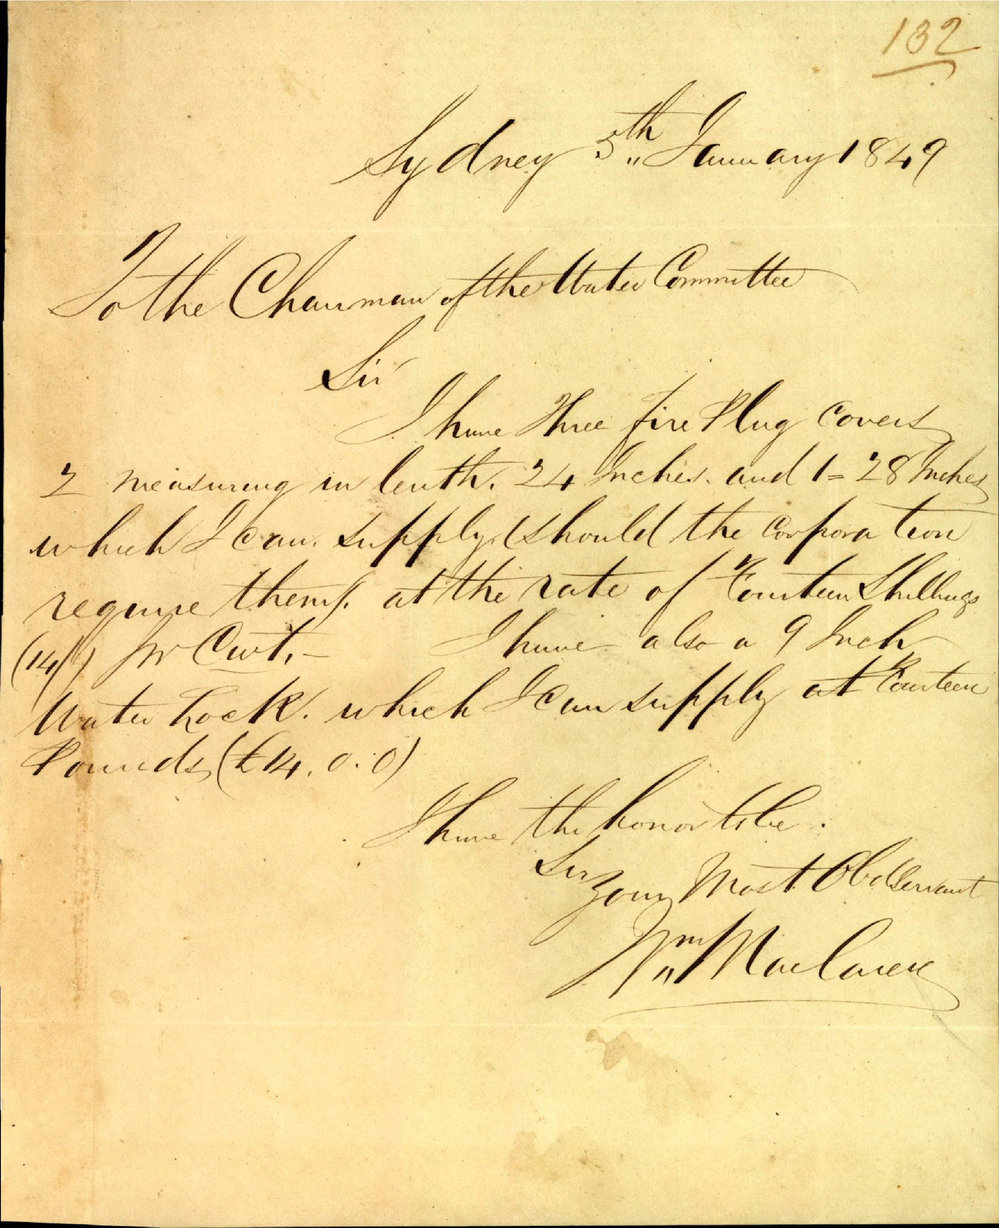 132
Sydney 5th January 1849
To the Chairman of the Water Committee
Sir
I have Three fire Plug Covers
2 measuring in lenth. 24 Inches. and 1 = 28 Inches
which I can. supply (should the corporation
require them). at the rate of Fourteen Shillings
(14/) pr Cwt, – I have also a 9 Inch
Water Lock. which I can supply at Fourteen
Pounds (£14. 0. 0)
I have the honor to be.
Sir
Your Most Obd Servant
Wm